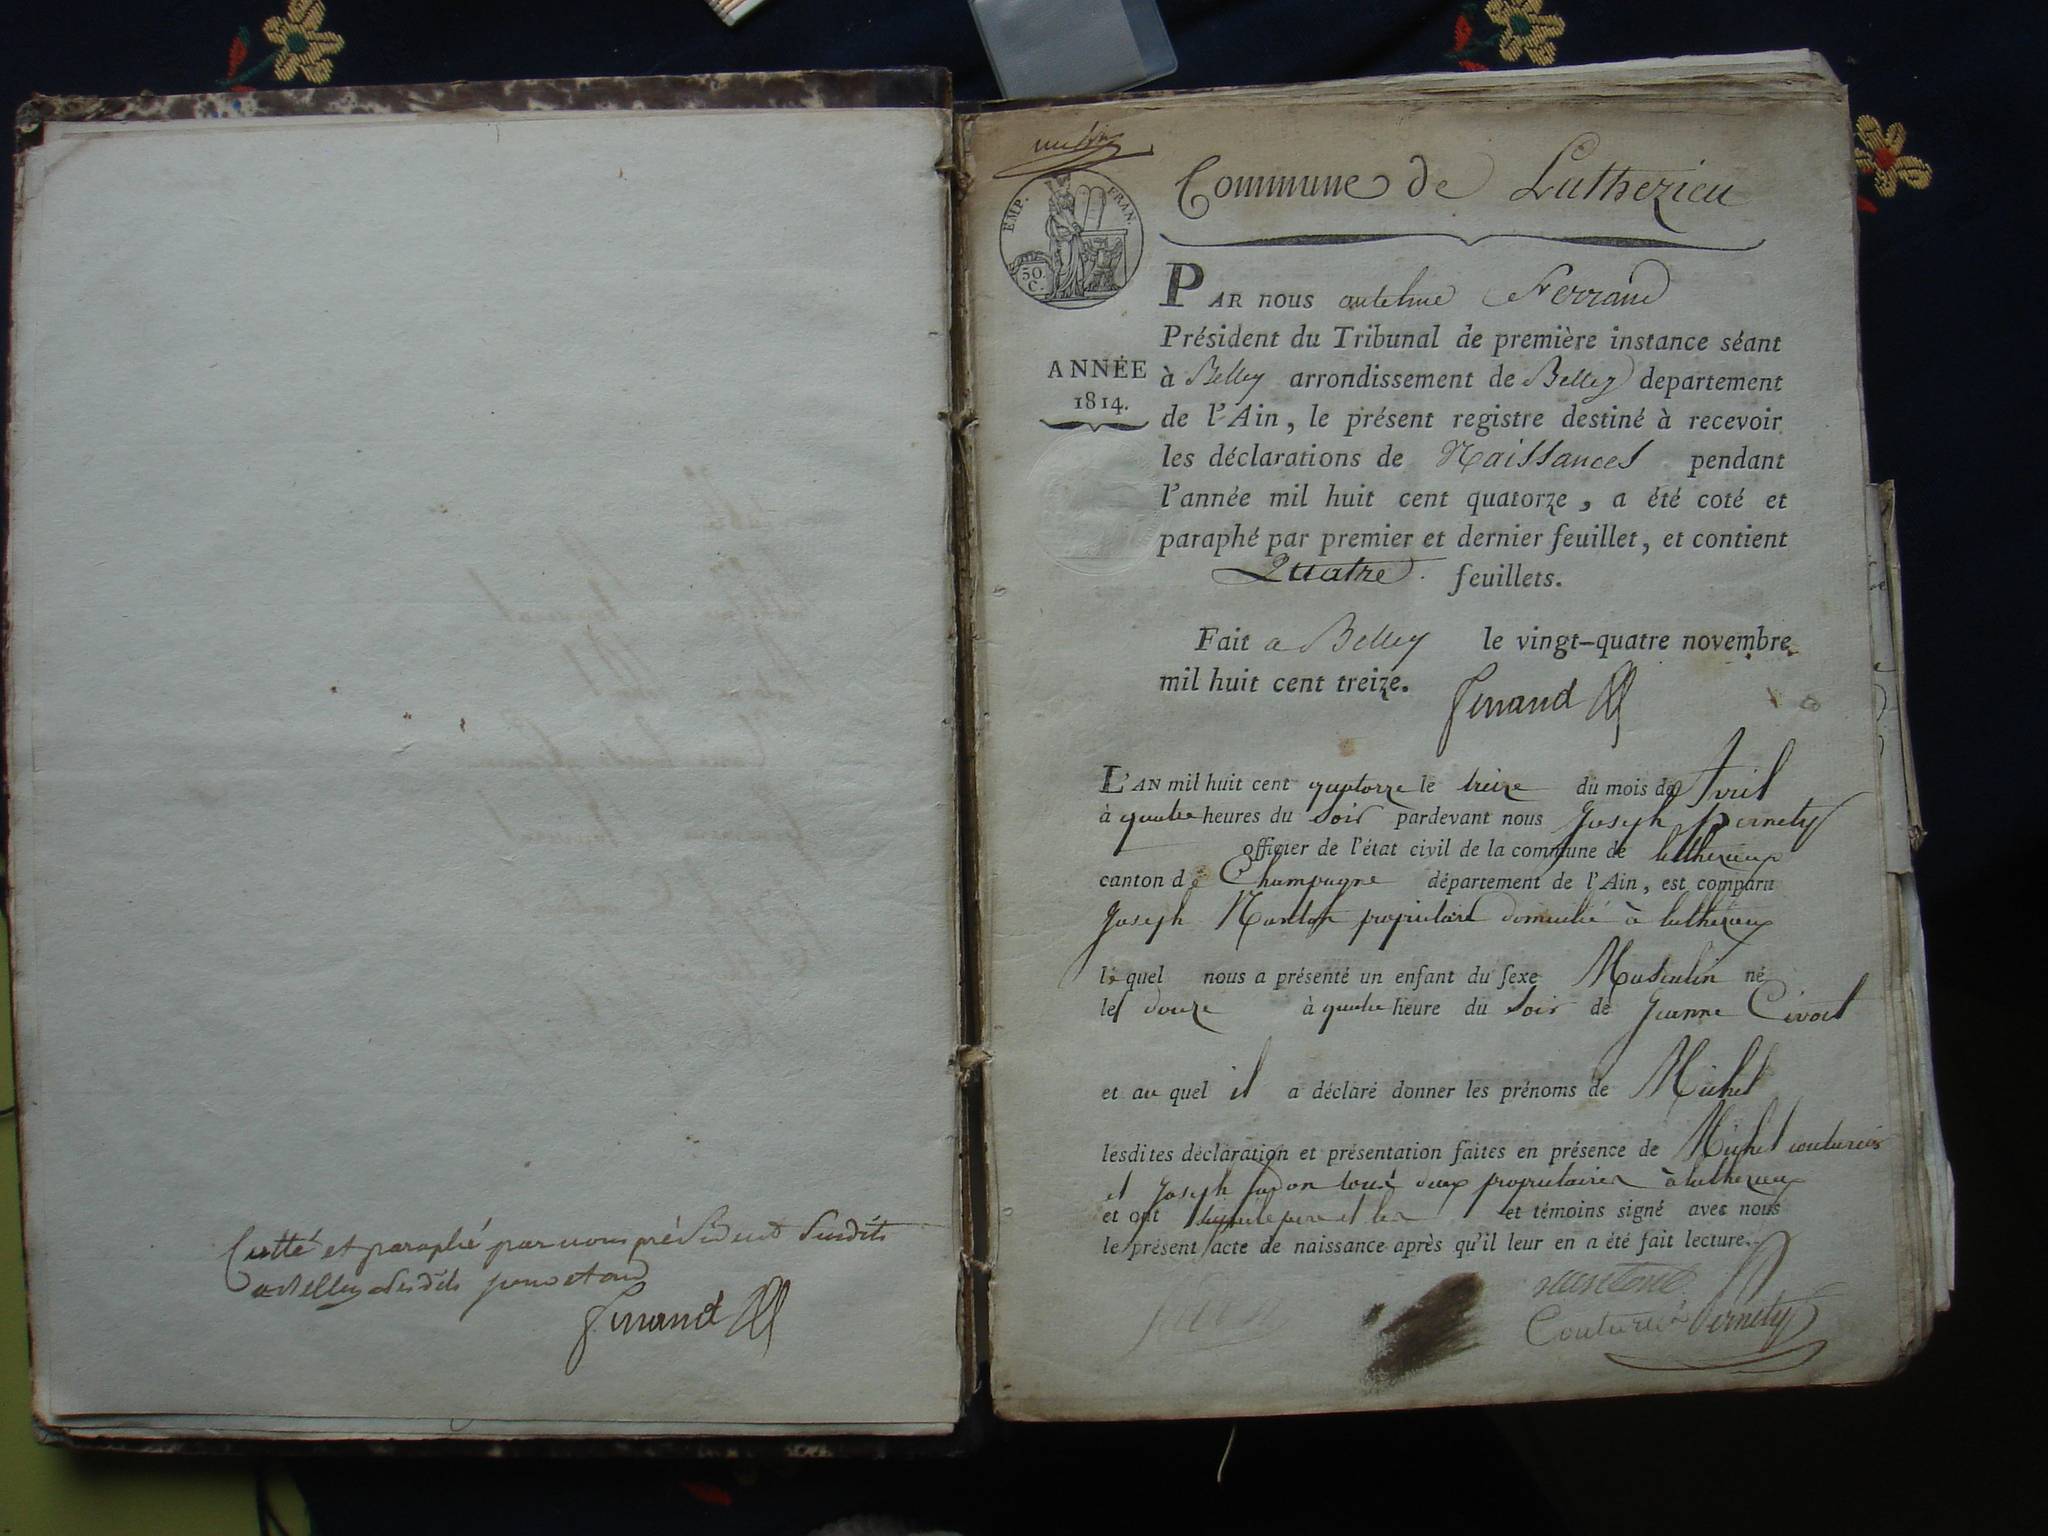 Cotté et paraphé par nous président susdits
a Belley lesdits jour et an
Ferrand
EMP. FRAN.
50.
C.
Commune de Luthezieu
ANNÉE
1814.
PAR nous antelme Ferrand
Président du Tribunal de première instance séant
à Belley arrondissement de Belley departement
de l'Ain, le présent registre destiné à recevoir
les déclarations de Naissances pendant
l'année mil huit cent quatorze, a été coté et
paraphé par premier et dernier feuillet, et contient
Quatre feuillets.
Fait a Belley le vingt-quatre novembre
mil huit cent treize.
Ferrand
L'AN mil huit cent quatorze le treize du mois de Avril
à quatre heures du soir pardevant nous Joseph pernety
officier de l'état civil de la commune de luthezieux
canton de Champagne département de l'Ain, est comparu
Joseph propriétaire domicilié à luthezieux
le quel nous a présenté un enfant du sexe Masculin né
le douze à quatre heure du soir de Jeanne
et au quel il a déclaré donner les prénoms de Michel
lesdites déclaration et présentation faites en présence de Michel couturier
et Joseph tous deux proprietaires à luthezieux
et ont le pere et les et témoins signé avec nous
le présent acte de naissance après qu'il leur en a été fait lecture.
Couturier Pernety